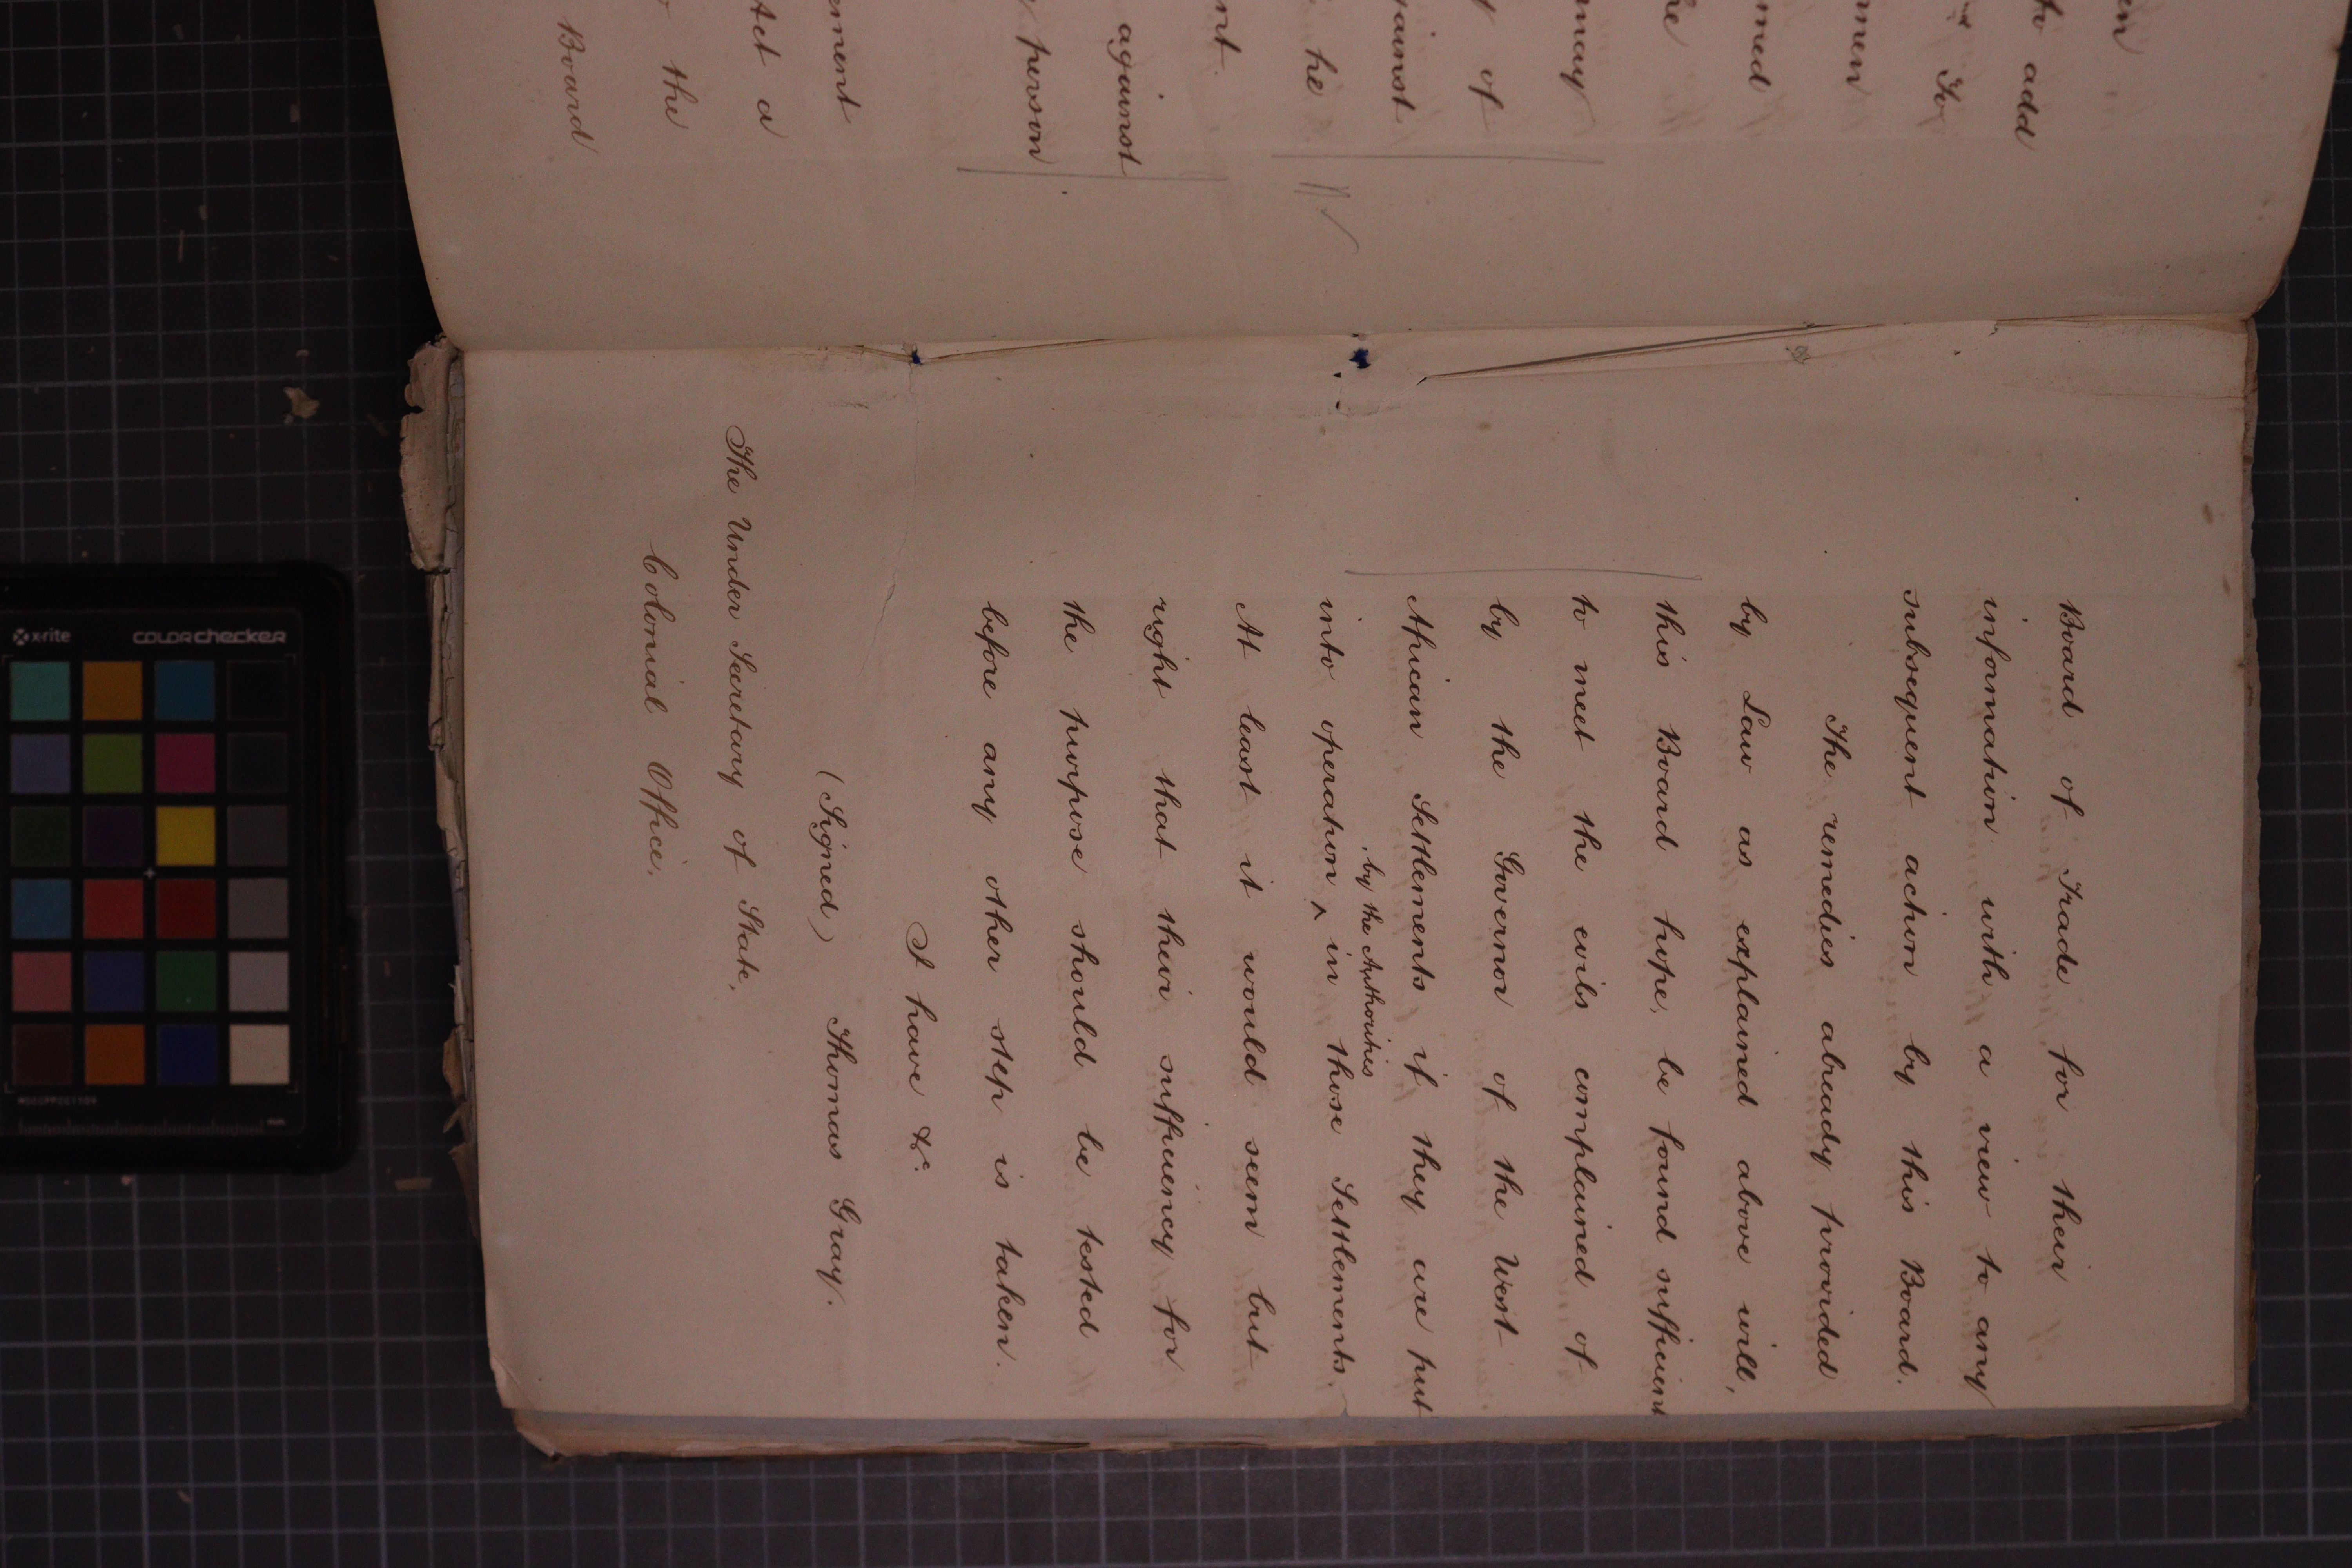 en
to add
To
men
med
he
may
of
gainst
he
nt.
against
person
ement
Act a
the
Board
Board of Trade for their
information with a view to any
subsequent action by this Board.
The remedies already provided
by Law as explained above will,
this Board hope, be found sufficient
to meet the evils complained of
by the Governor of the West
African Settlements if they are put
by the Authorities
into operation ^ in those Settlements.
At least it would seem but
right that their sufficiency for
the purpose should be tested
before any other step is taken.
I have &c.
(Signed) Thomas Gray.
The Under Secretary of State,
Colonial Office.
x-rite
colorchecker